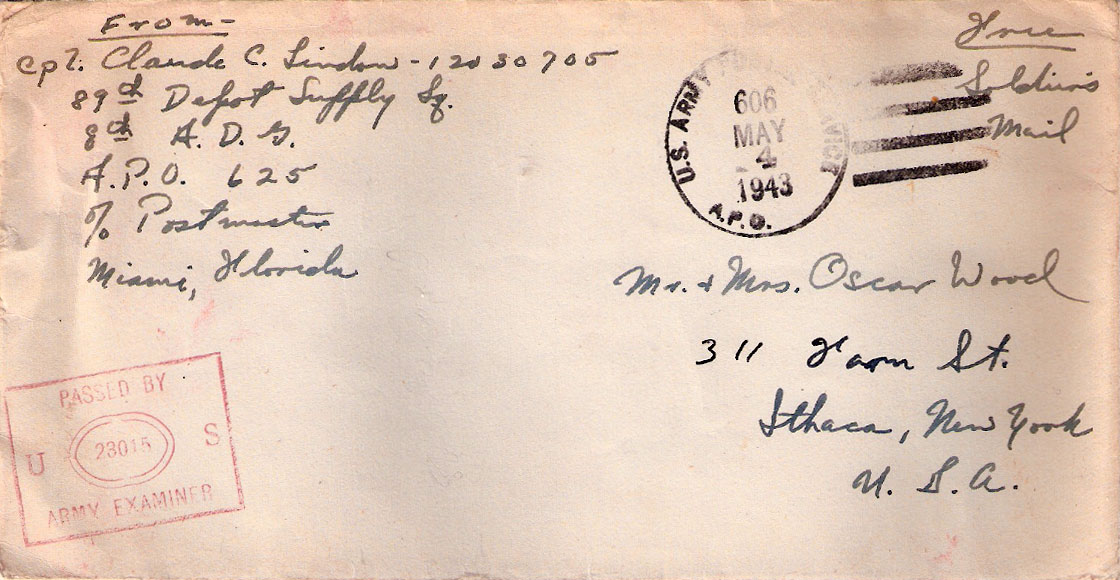 From-
Cpl. Claude C. Lindow - 12030705
89th Depot Supply Sq.
8th A. D. G.
A.P.O. 625
% Postmaster
Miami, Florida
Free
Soldiers
Mail
U.S. ARMY POSTAL SERVICE
606
MAY
4
1943
A.P.O.
Mr. & Mrs. Oscar Wood
311 Farm St.
Ithaca, New York
U. S. A.
PASSED BY
U 23015 S
ARMY EXAMINER